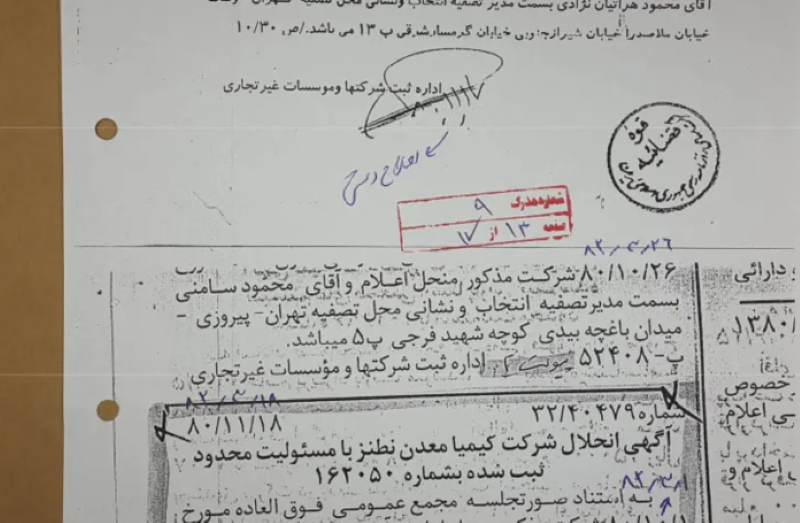 آقای محمود هراتیان نژادی بسمت مدیر تصفیه انتخاب ونشانی محل تصفیه تهران
خیابان ملاصدرا خیابان شیرازجنوبی خیابان گرمسارشرقی پ ۱۳ می باشد./ص ۱۰/۳۰
اداره ثبت شرکتها وموسسات غیرتجاری
اصلاح
قوه قضائیه
شماره مدرک ۹
صفحه ۱۳ از ۱۷
۸۲/۳/۲۶
۸۰/۱۰/۲۶ شرکت مذکور منحل اعلام و آقای محمود سامنی
بسمت مدیرتصفیه انتخاب و نشانی محل تصفیه تهران- پیروزی -
میدان باغچه بیدی کوچه شهید فرجی پ۵ میباشد.
پ- ۵۲۴۰۸ اداره ثبت شرکتها و مؤسسات غیرتجاری
۸۲/۳/۱۸
شماره ۳۲/۴۰۴۷۹
۸۰/۱۱/۱۸
آگهی انحلال شرکت کیمیا معدن نطنز با مسئولیت محدود
ثبت شده بشماره ۱۶۲۰۵۰
۸۲/۳/۱
به استناد صورتجلسه مجمع عمومی فوق العاده مورخ
و دارائی
۱۳۸۰/
خصوص
ی اعلام
اعلام و